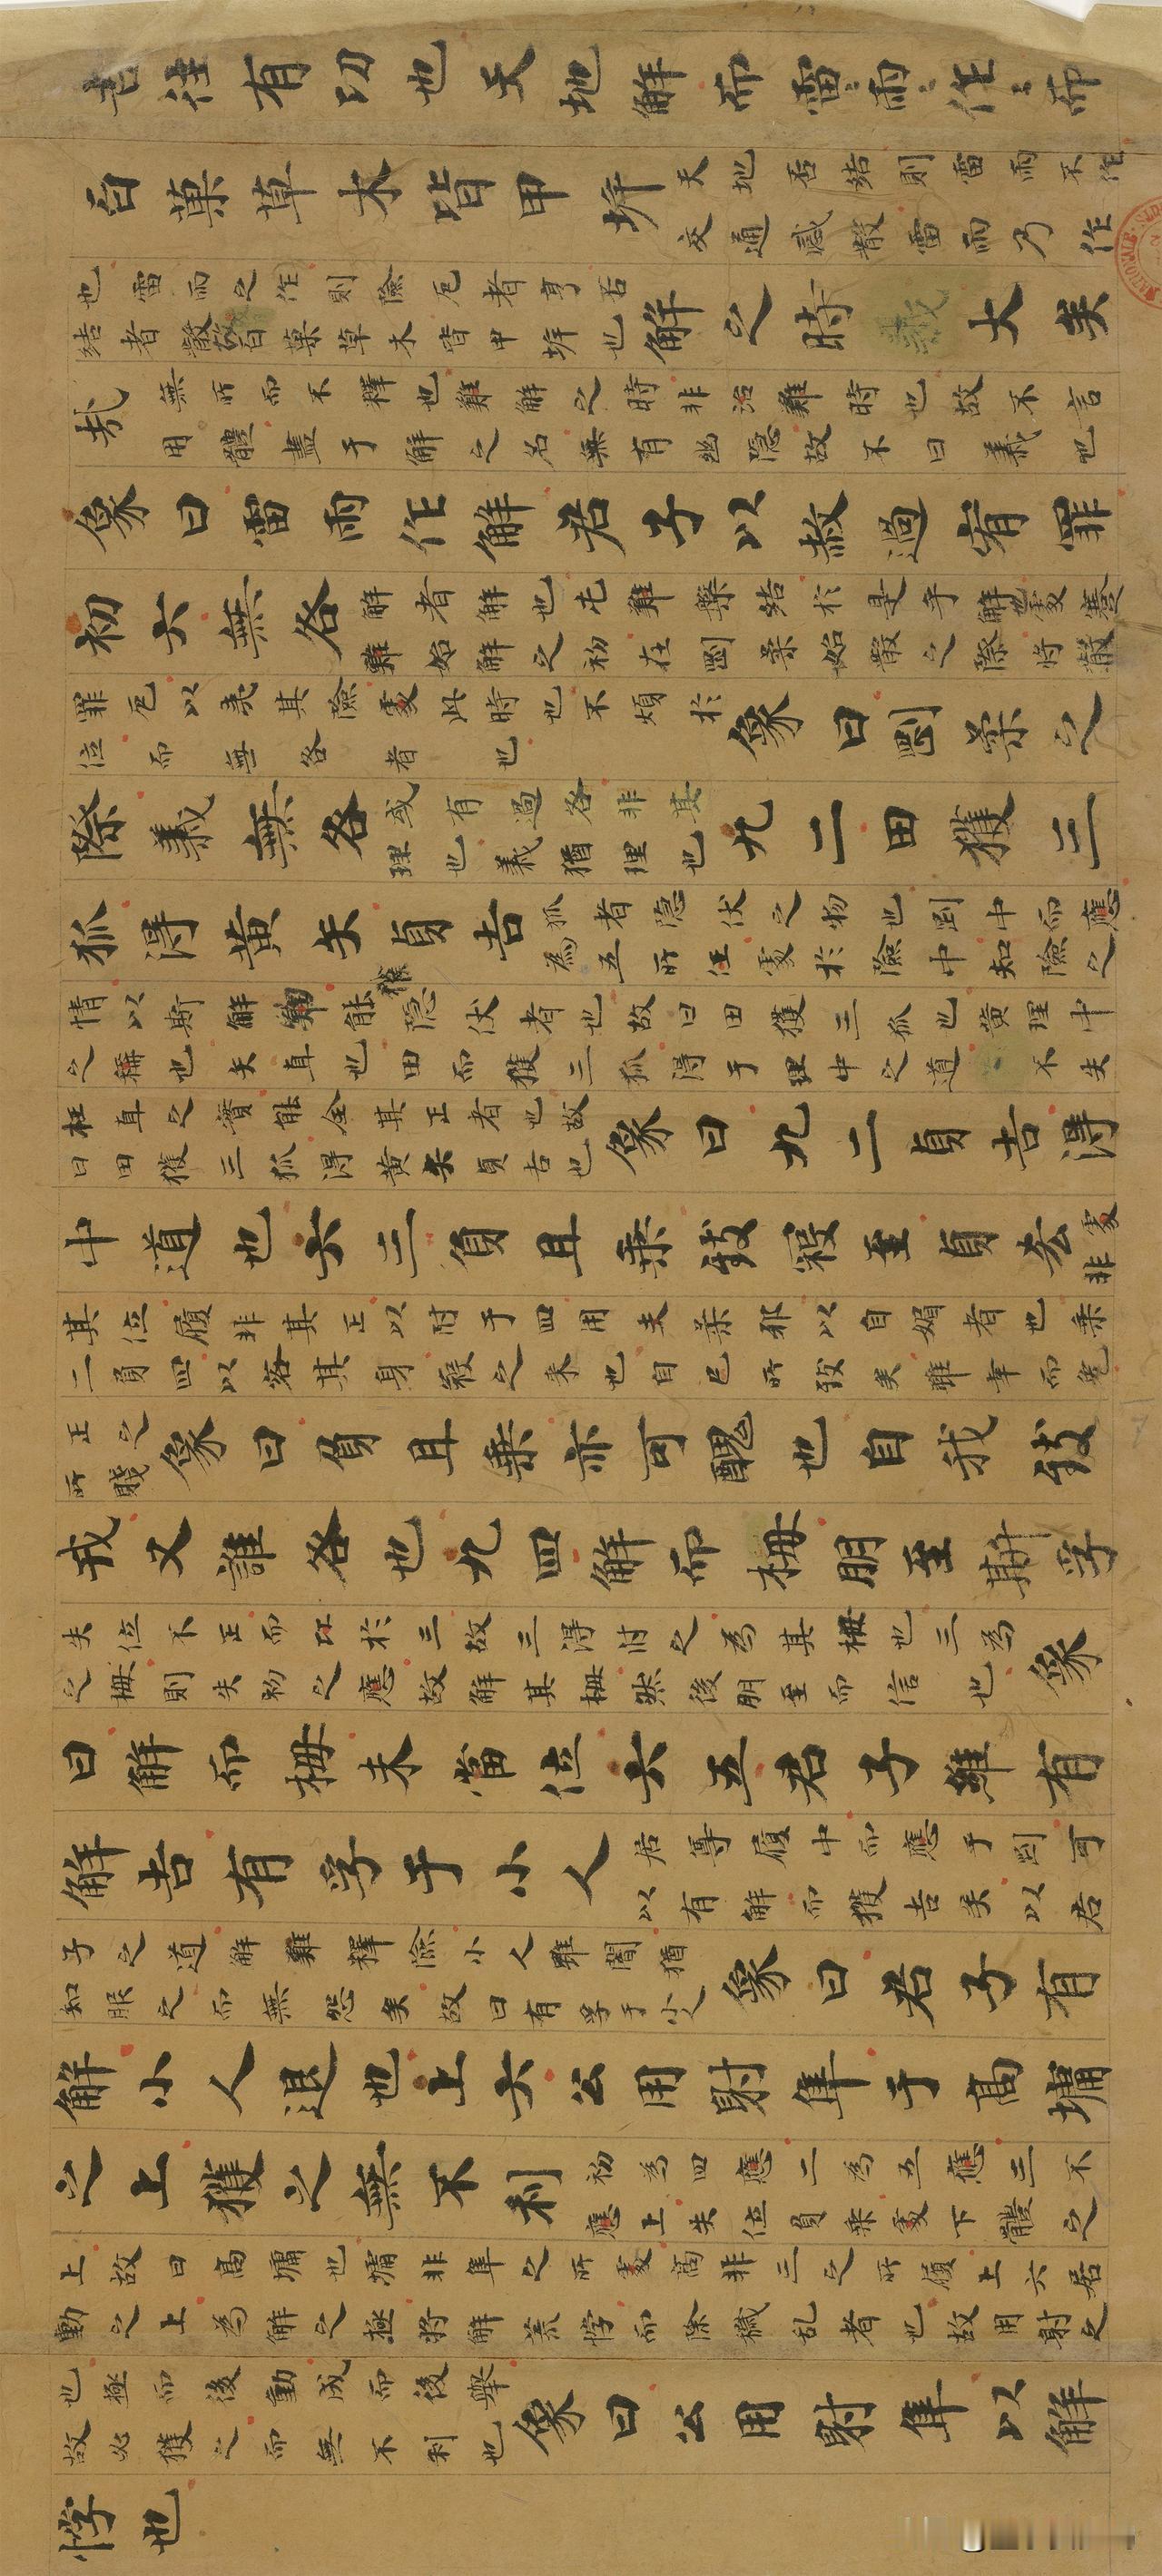 吉往有功也天地解而雷〻雨〻作〻而
百菓草木皆甲坼
天地否結則雷雨不作
交通感散雷雨乃作
也雷雨之作則險厄者亨否
結者散故百菓草木皆甲坼也
解之時義大矣
哉
無所而不釋也難解之時非治難時也故不言
用體盡于解之名無有幽隱故不曰義也
象曰雷雨作解君子以赦過宥罪
初六無咎
解者解也屯難槃結於是乎解也處蹇
難始解之初在剛柔始散之際將散
罪厄以夷其險處此時也不煩於
位而無咎者也
象曰剛柔之
際義無咎
或有過咎非其
理也義猶理也
九二田獲三
狐得黃矢貞吉
狐者隱伏之物也剛中而應
為五所任處於險中知險之
情以斯解物能獲隱伏者也故曰田獲三狐也黃理中
之稱也矢直也田而獲三狐得于理中之道不失
枉直之實能全其正者也故
曰田獲三狐得黃矢貞吉也
象曰九二貞吉得
中道也六三負且乘致寇至貞吝
處
非
其位履非其正以附于四用夫柔邪以自媚者也乘
二負四以容其身寇之来也自已所致矣雖幸而免
正之
所賤
象曰負且乘亦可醜也自我致
戎又誰咎也九四解而拇朋至斯孚
失位不正而比於三故三得附之為其拇也三為
之拇則失初之應故解其拇然後朋至而信也
象
曰解而拇未當位六五君子維有
解吉有孚于小人
居尊履中而應于剛可
以有解而獲吉矣以君
子之道解難釋險小人雖闇猶
知服之而無怨矣故曰有孚于小人
象曰君子有
解小人退也上六公用射隼于高墉
之上獲之無不利
初為四應二為五應三不
應上失位負乘處下體之
上故曰高墉也墉非隼之所處高非三之所履上六居
動之上為解之極將解荒悖而除穢乱者也故用射之
也極而後動成而後舉
故必獲之而無不利也
象曰公用射隼以解
悖也